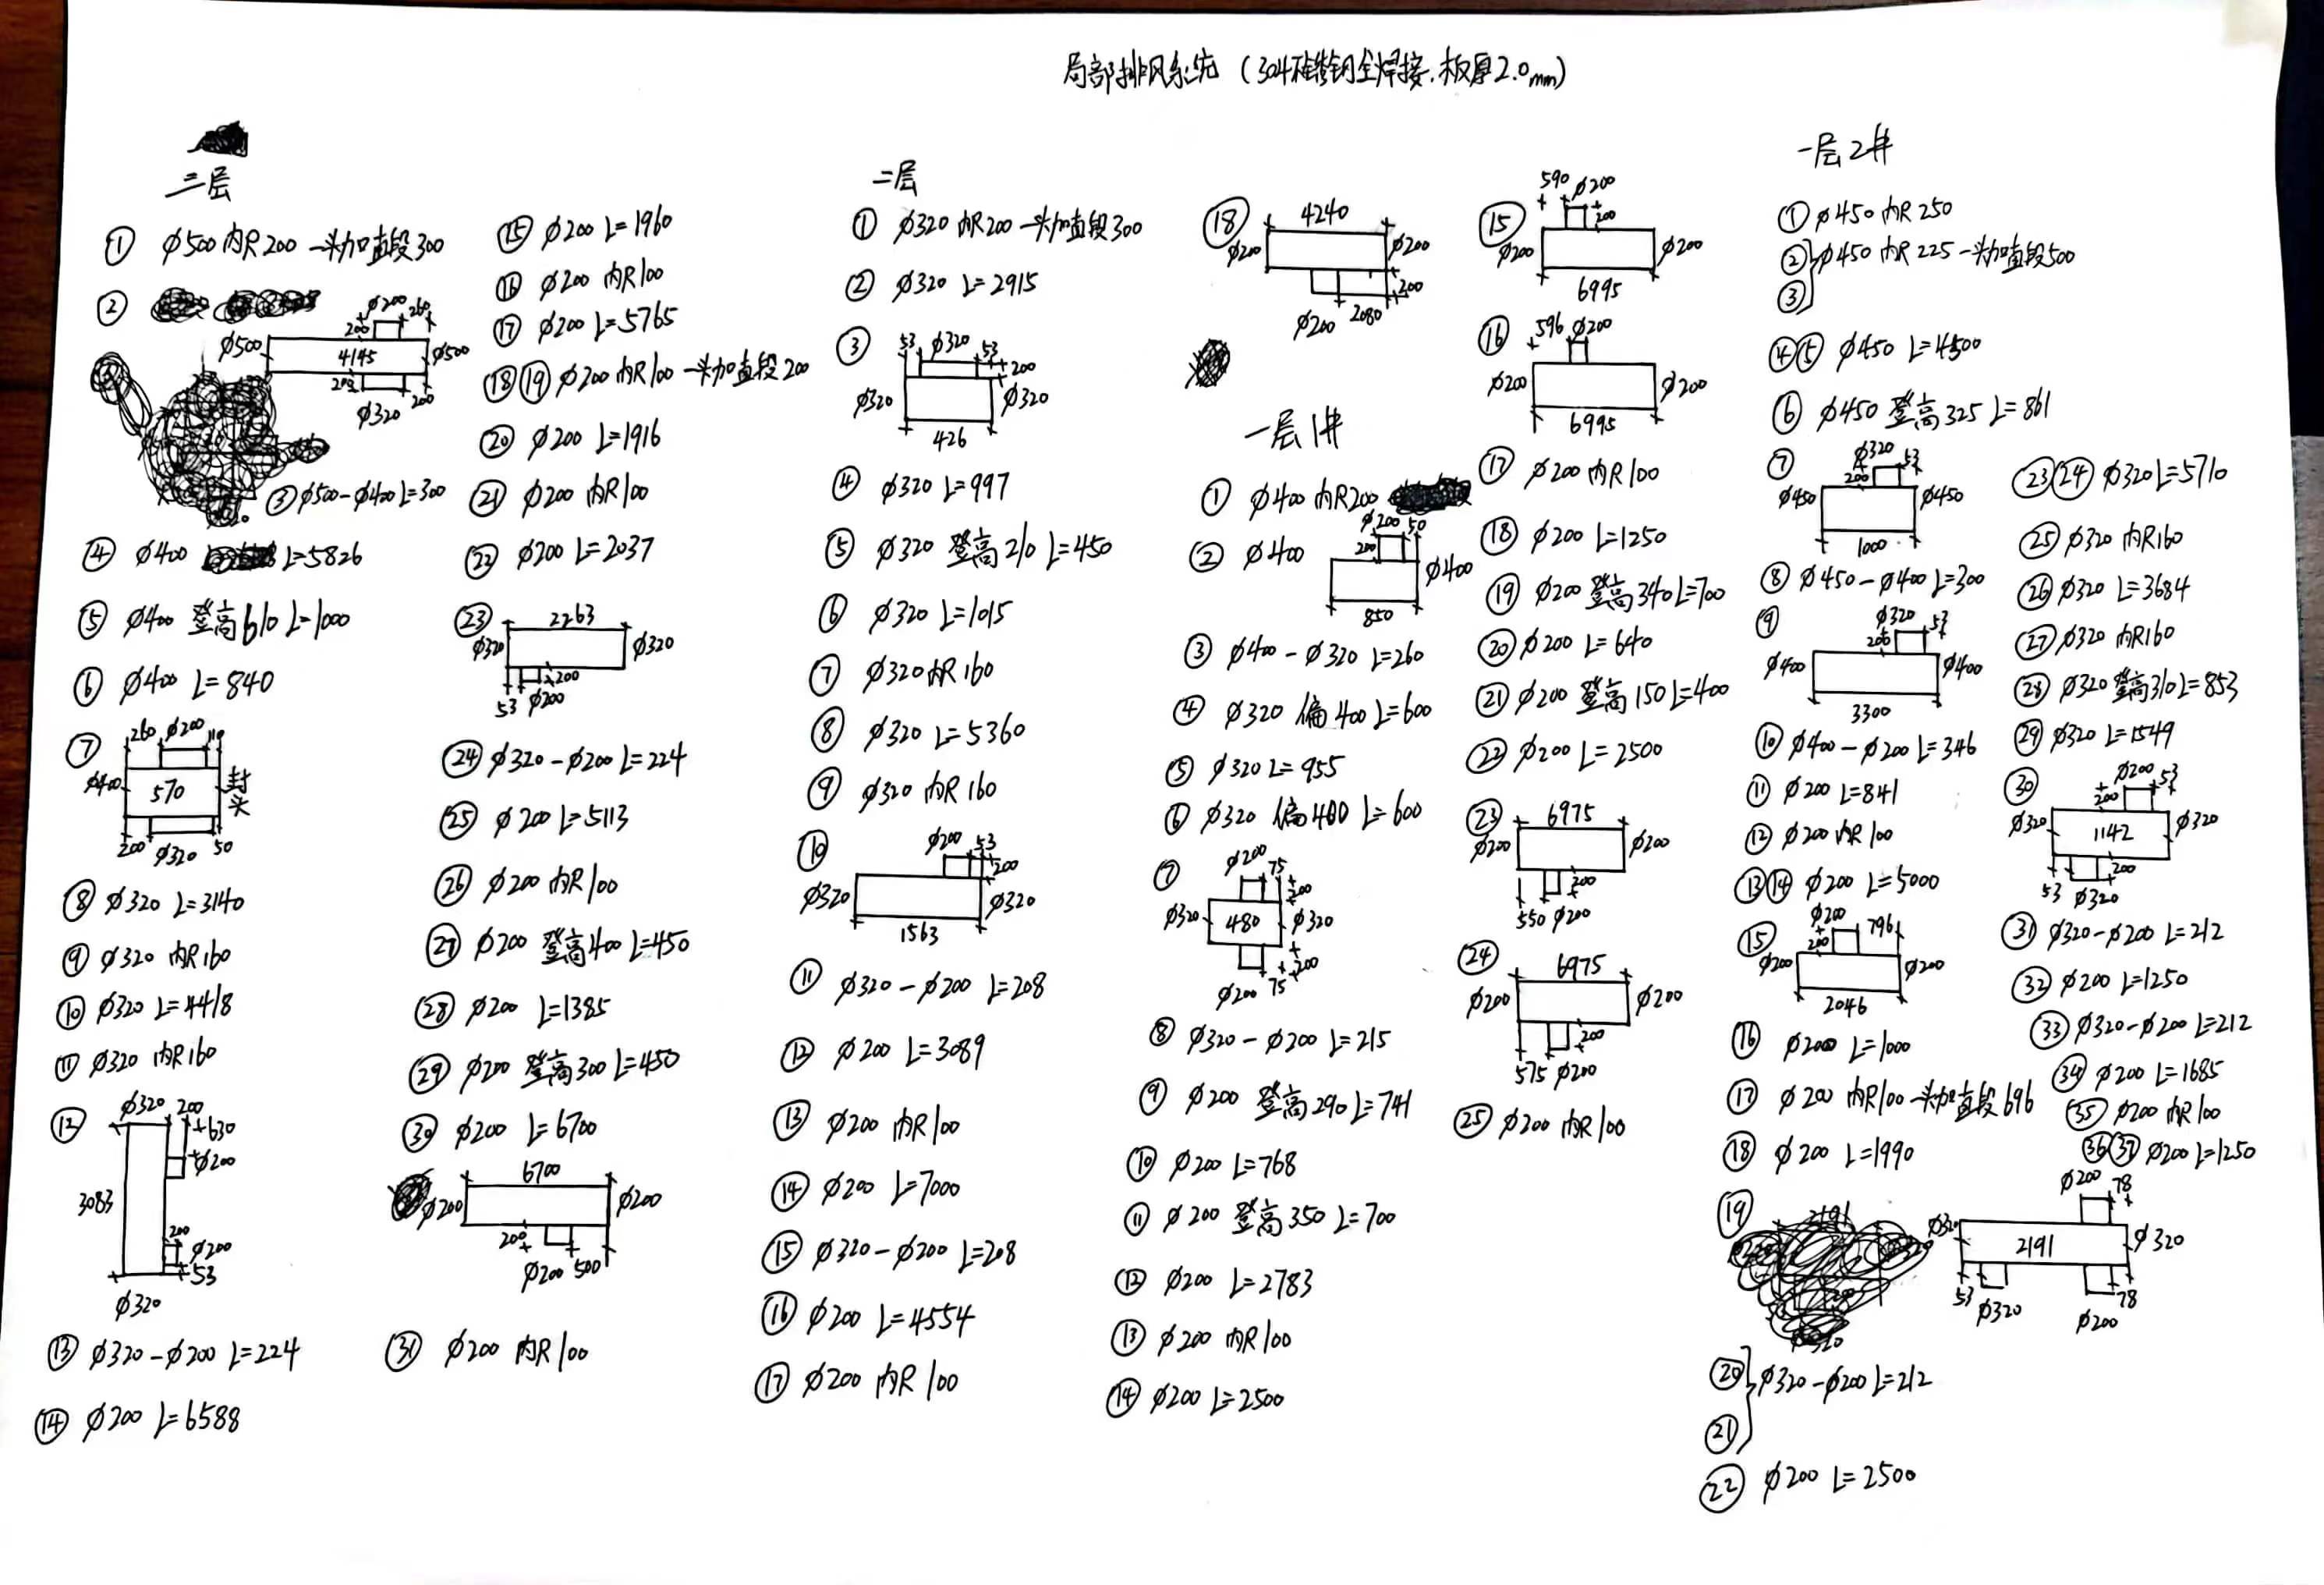 局部排风系统（304不锈钢全焊接.板厚2.0mm）
三层
① φ500 内R200 一头加直段300
②
φ200 260
200
φ500 4145 φ500
200
φ320 200
③ φ500-φ400 L=300
④ φ400 L=5826
⑤ φ400 登高610 L=1000
⑥ φ400 L=840
⑦ 260 φ200 110
φ400 570 封头
200 φ320 50
⑧ φ320 L=3140
⑨ φ320 内R160
⑩ φ320 L=4418
⑪ φ320 内R160
⑫ φ320 200
630
φ200
3083
200
φ200
53
φ320
⑬ φ320-φ200 L=224
⑭ φ200 L=6588
⑮ φ200 L=1960
⑯ φ200 内R100
⑰ φ200 L=5765
⑱⑲ φ200 内R100 一头加直段200
⑳ φ200 L=1916
㉑ φ200 内R100
㉒ φ200 L=2037
㉓ 2263
φ320 φ320
200
53 φ200
㉔ φ320-φ200 L=224
㉕ φ200 L=5113
㉖ φ200 内R100
㉗ φ200 登高400 L=450
㉘ φ200 L=1385
㉙ φ200 登高300 L=450
㉚ φ200 L=6700
6700
φ200 φ200
200
φ200 500
㉛ φ200 内R100
二层
① φ320 内R200 一头加直段300
② φ320 L=2915
③ 53 φ320 53
200
φ320 φ320
426
④ φ320 L=997
⑤ φ320 登高210 L=450
⑥ φ320 L=1015
⑦ φ320 内R160
⑧ φ320 L=5360
⑨ φ320 内R160
⑩ φ200 53
200
φ320 φ320
1563
⑪ φ320-φ200 L=208
⑫ φ200 L=3089
⑬ φ200 内R100
⑭ φ200 L=7000
⑮ φ320-φ200 L=208
⑯ φ200 L=4554
⑰ φ200 内R100
⑱ 4240
φ200 φ200
200
φ200 2080
一层1井
① φ400 内R200
② φ400
φ200 50
200
φ400
850
③ φ400-φ320 L=260
④ φ320 偏400 L=600
⑤ φ320 L=955
⑥ φ320 偏400 L=600
⑦ φ200 75
200
φ320 480 φ320
200
φ200 75
⑧ φ320-φ200 L=215
⑨ φ200 登高290 L=741
⑩ φ200 L=768
⑪ φ200 登高350 L=700
⑫ φ200 L=2783
⑬ φ200 内R100
⑭ φ200 L=2500
⑮ 590 φ200
200
φ200 φ200
6995
⑯ 596 φ200
φ200 φ200
6995
⑰ φ200 内R100
⑱ φ200 L=1250
⑲ φ200 登高340 L=700
⑳ φ200 L=640
㉑ φ200 登高150 L=400
㉒ φ200 L=2500
㉓ 6975
φ200 φ200
200
550 φ200
㉔ 6975
φ200 φ200
200
575 φ200
㉕ φ200 内R100
一层2井
① φ450 内R250
②
③ φ450 内R225 一头加直段500
④⑤ φ450 L=4500
⑥ φ450 登高325 L=861
⑦ φ320 53
200
φ450 φ450
1000
⑧ φ450-φ400 L=300
⑨ φ320 53
200
φ400 φ400
3300
⑩ φ400-φ200 L=346
⑪ φ200 L=841
⑫ φ200 内R100
⑬⑭ φ200 L=5000
⑮ φ200 796
200
φ200 φ200
2046
⑯ φ200 L=1000
⑰ φ200 内R100 一头加直段696
⑱ φ200 L=1990
⑲ φ200 78
φ320 2191 φ320
53 φ320 φ200 78
⑳
㉑ φ320-φ200 L=212
㉒ φ200 L=2500
㉓㉔ φ320 L=5710
㉕ φ320 内R160
㉖ φ320 L=3684
㉗ φ320 内R160
㉘ φ320 登高310 L=853
㉙ φ320 L=1549
㉚ φ200 53
200
φ320 1142 φ320
200
53 φ320
㉛ φ320-φ200 L=212
㉜ φ200 L=1250
㉝ φ320-φ200 L=212
㉞ φ200 L=1685
㉟ φ200 内R100
㊱㊲ φ200 L=1250